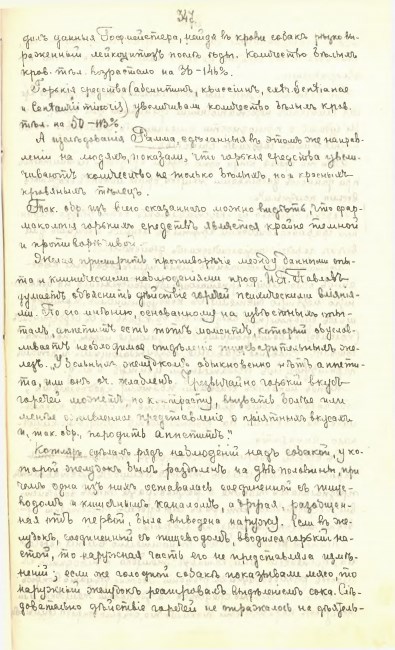 347
дилъ данныя Гофмейстера, найдя въ крови собакъ рѣзко вы-
раженный лейкоцитозъ послѣ ѣды. Количество бѣлыхъ
кров. тѣл. возрастало на 36-146%.
Горькія средства (абсинтинъ, квассіинъ, extr. Gentianae
и Centaurii minoris) увеличивали количество бѣлыхъ кров.
тѣл. на 50-113%.
А изслѣдованія Рамма, сдѣланныя въ этомъ же направ-
леніи на людяхъ, показали, что горькія средства увели-
чиваютъ количество не только бѣлыхъ, но и красныхъ
кровяныхъ тѣлецъ.
Так. обр. изъ всего сказаннаго можно видѣть, что фар-
макологія горькихъ средствъ является крайне темной
и противорѣчивой.
Желая примирить противорѣчіе между данными опы-
та и клиническими наблюденіями проф. И.П. Павловъ
думаетъ объяснить дѣйствіе горечей психическимъ вліяні-
ем. По его мнѣнію, основанному на извѣстныхъ опы-
тахъ, аппетитъ есть тотъ моментъ, который обуслав-
ливаетъ необходимое отдѣленіе пищеварительныхъ же-
лезъ. „У больныхъ желудкомъ обыкновенно нѣтъ аппети-
та, или онъ оч. жалокъ. Чрезвычайно горькій вкусъ
горечей можетъ, по контрасту, вызвать болѣе или
менѣе оживленное представленіе о пріятныхъ вкусахъ
и, так. обр., породить аппетитъ."
Котляръ сдѣлалъ рядъ наблюденій надъ собакой, у ко-
торой желудокъ былъ раздѣленъ на двѣ половины, при
чемъ одна изъ нихъ оставалась соединенной съ пище-
водомъ и кишечнымъ каналомъ, а другая, разобщен-
ная отъ первой, была выведена наружу. Если въ же-
лудокъ, соединенный съ пищеводомъ, вводился горькій на-
стой, то наружная часть его не представляла измѣ-
неній; если же голодной собакѣ показывали мясо, то
наружный желудокъ реагировалъ выдѣленіемъ сока. Слѣ-
довательно дѣйствіе горечей не отражалось на дѣятель-